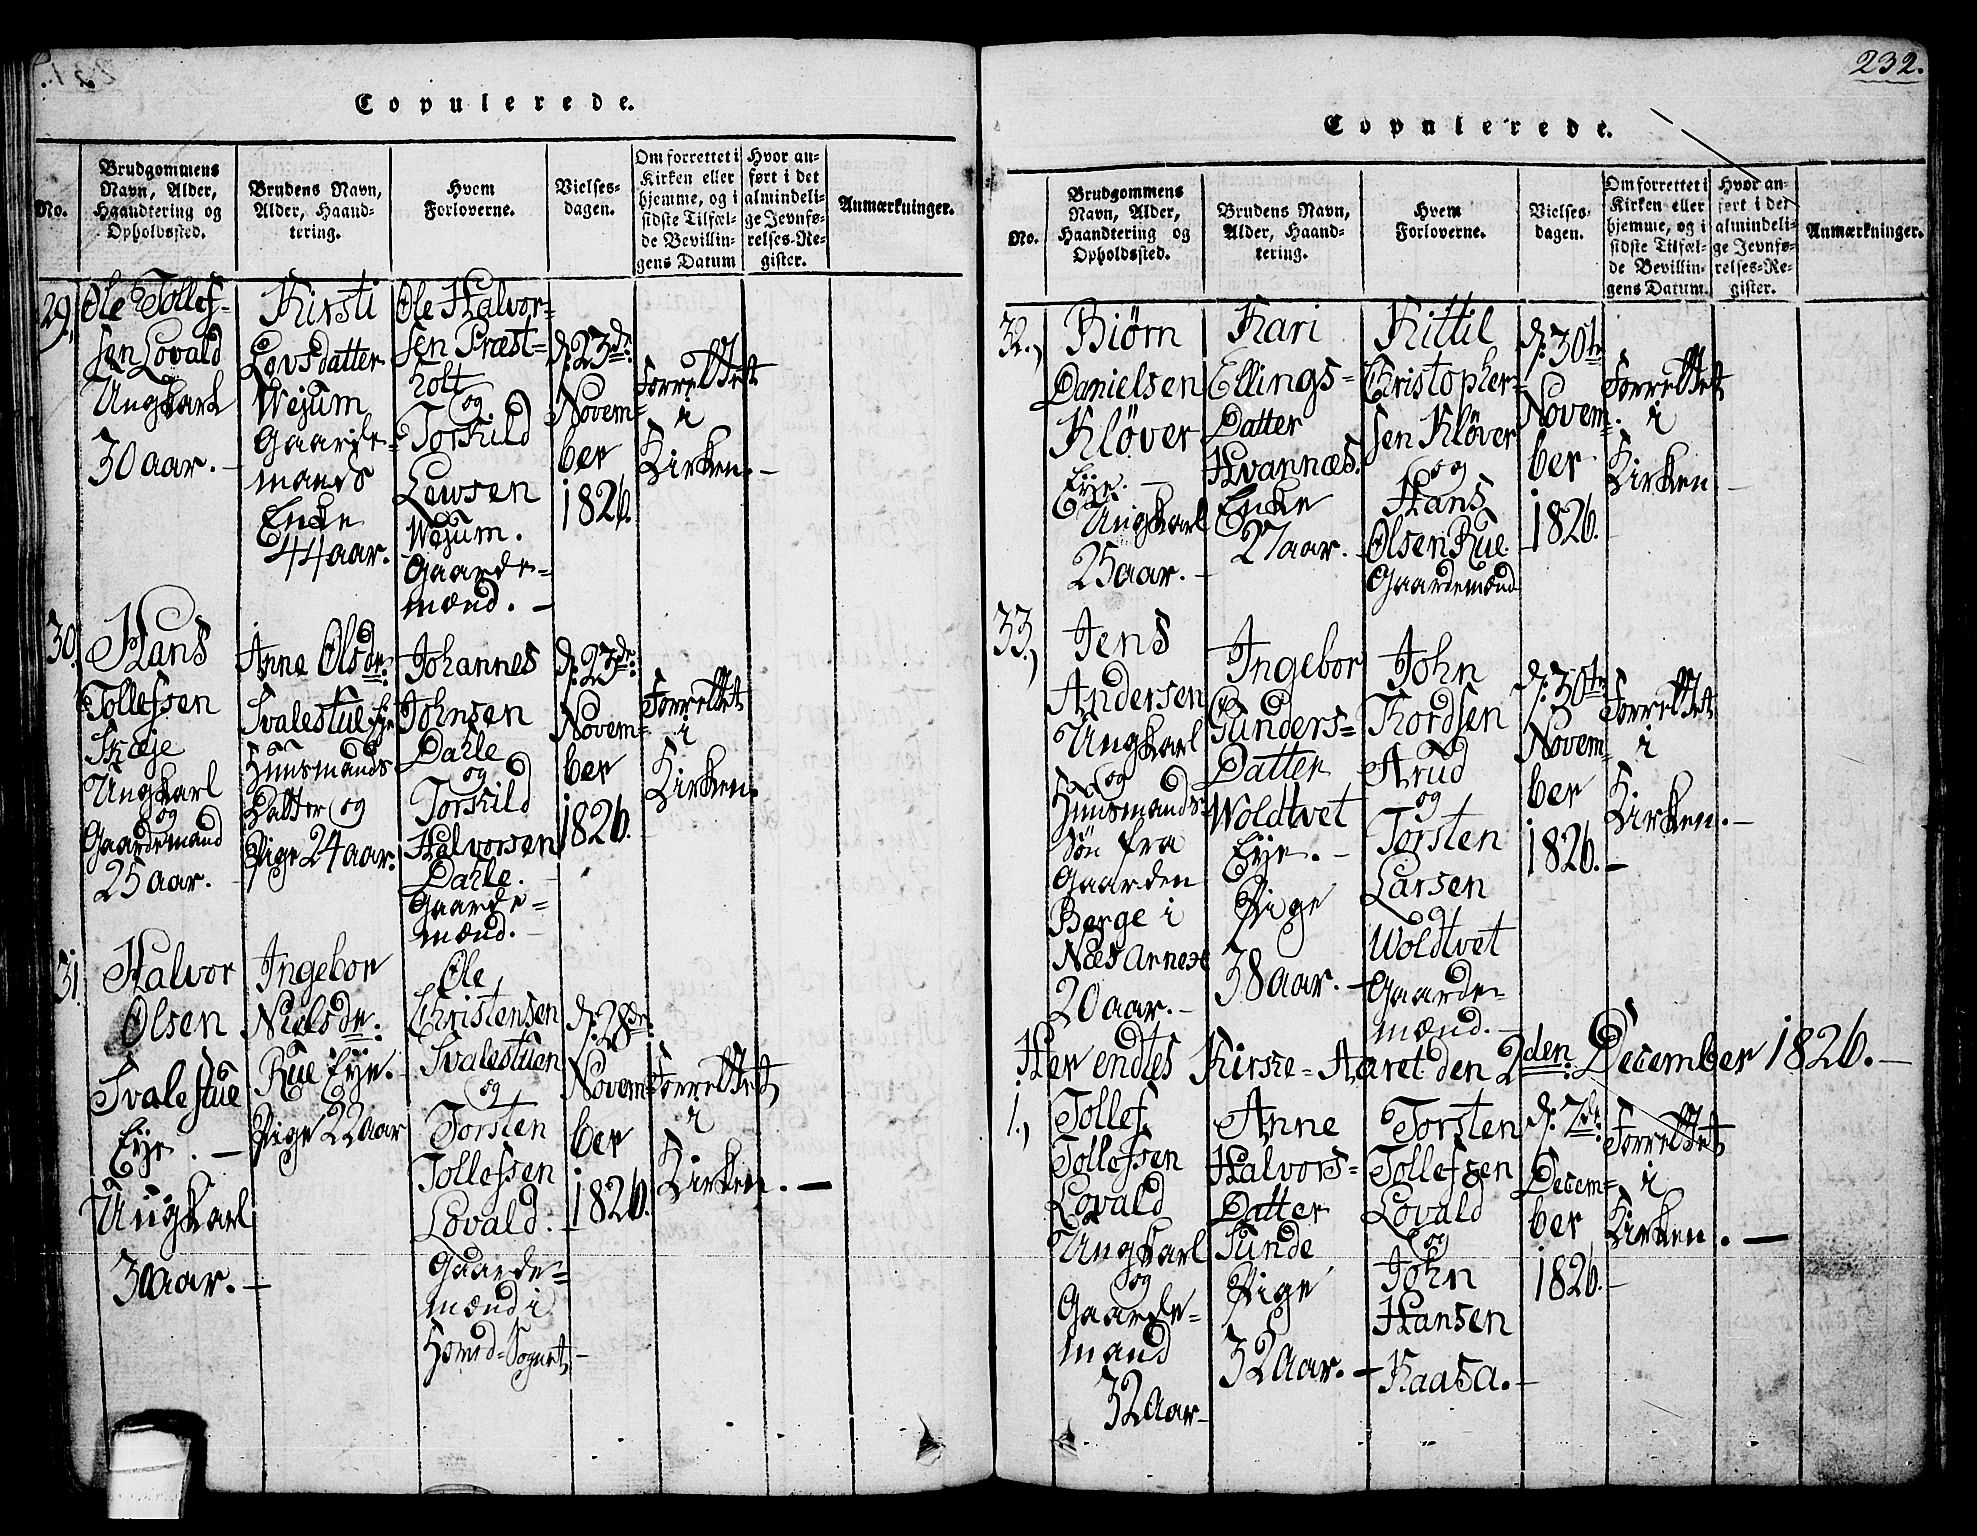 Copulerede.
No.
Brudgommens
Navn, Alder,
Haandtering og
Opholdssted.
Brudens Navn,
Alder, Haand-
tering.
Hvem
Forloverne.
Vielses-
dagen.
Om forrettet i
Kirken eller
hjemme, og i
sidste Tilfæl-
de Bevillin-
gens Datum
Hvor an-
ført i det
almindeli-
ge Jevnfø-
relses-Re-
gister.
Anmærkninger.
29.
Ole Tollef-
sen Lovald
Ungkarl
30 aar. -
Kirsti
Lovsdatter
Wejum
Gaarde-
mands
Enke
44 aar.
Ole Halvor-
sen Præst-
holt
og
Torkild
Lewsen
Wejum.
Gaarde-
mænd. -
d. 23de
Novem-
ber
1826.
Forrettet
i
Kirken. -
30.
Hans
Tollefsen
Skeje
Ungkarl
og
Gaardemand
25 aar. -
Anne Olsdr:
Svalestue Eje
Huusmands
Datter og
Pige 24 aar.
Johannes
Johnsen
Dahle
og
Torkild
Halvorsen
Dahle. -
Gaarde-
mænd. -
d. 23de:
Novem-
ber
1826.
Forrettet
i
Kirken.
31.
Halvor
Olsen
Svalestue
Eje. -
Ungkarl
30 aar. -
Ingebor
Nielsdr:
Rue Eje.
Pige 22 aar
Ole
Christensen
Svalestuen
og
Torsten
Tollefsen
Lovald. -
Gaarde-
mænd i
Hjemd-Sognet. -
d. 28de:
Novem-
ber
1826.
Forrettet
i
Kirken. -
232.
Copulerede.
No.
Brudgommens
Navn, Alder,
Haandtering og
Opholdssted.
Brudens Navn,
Alder, Haand-
tering.
Hvem
Forloverne.
Vielses-
dagen.
Om forrettet i
Kirken eller
hjemme, og i
sidste Tilfæl-
de Bevillin-
gens Datum.
Hvor an-
ført i det
almindeli-
ge Jevnfø-
relses-Re-
gister.
Anmærkninger.
32.,
Biørn
Danielsen
Kløver
Eje. -
Ungkarl
25 aar. -
Kari
Ellings-
Datter
Hvannæs.
Enke
27 aar. -
Kittil
Christopher-
sen Kløver
og
Hans
Olsen Rue
Gaardemænd
d. 30te
Novem-
ber
1826.
Forrettet
i
Kirken -
33.,
Jens
Andersen
Ungkarl
og
Huusmands-
Søn fra
Gaarden
Berge i
Næs Annexe
20 aar. -
Ingebor
Gunders-
Datter
Woldtvet
Eje. -
Pige
38 aar. -
John
Thordsen
Aarud
og
Torsten
Larsen
Woldtvet
Gaarde-
mænd. -
d. 30te
Novem-
ber
1826. -
Forrettet
i
Kirken. -
Her endtes Kirke-Aaret den 2den December 1826. -
1.,
Tollef
Tollefsen
Lovald
Ungkarl
og
Gaarde-
mand
32 aar -
Anne
Halvors-
Datter
Sunde
Pige
32 aar. -
Torsten
Tollefsen
Lovald
og
John
Hansen
Kaasa. -
d. 7de:
Decem-
ber
1826. -
Forrettet
i
Kirken. -